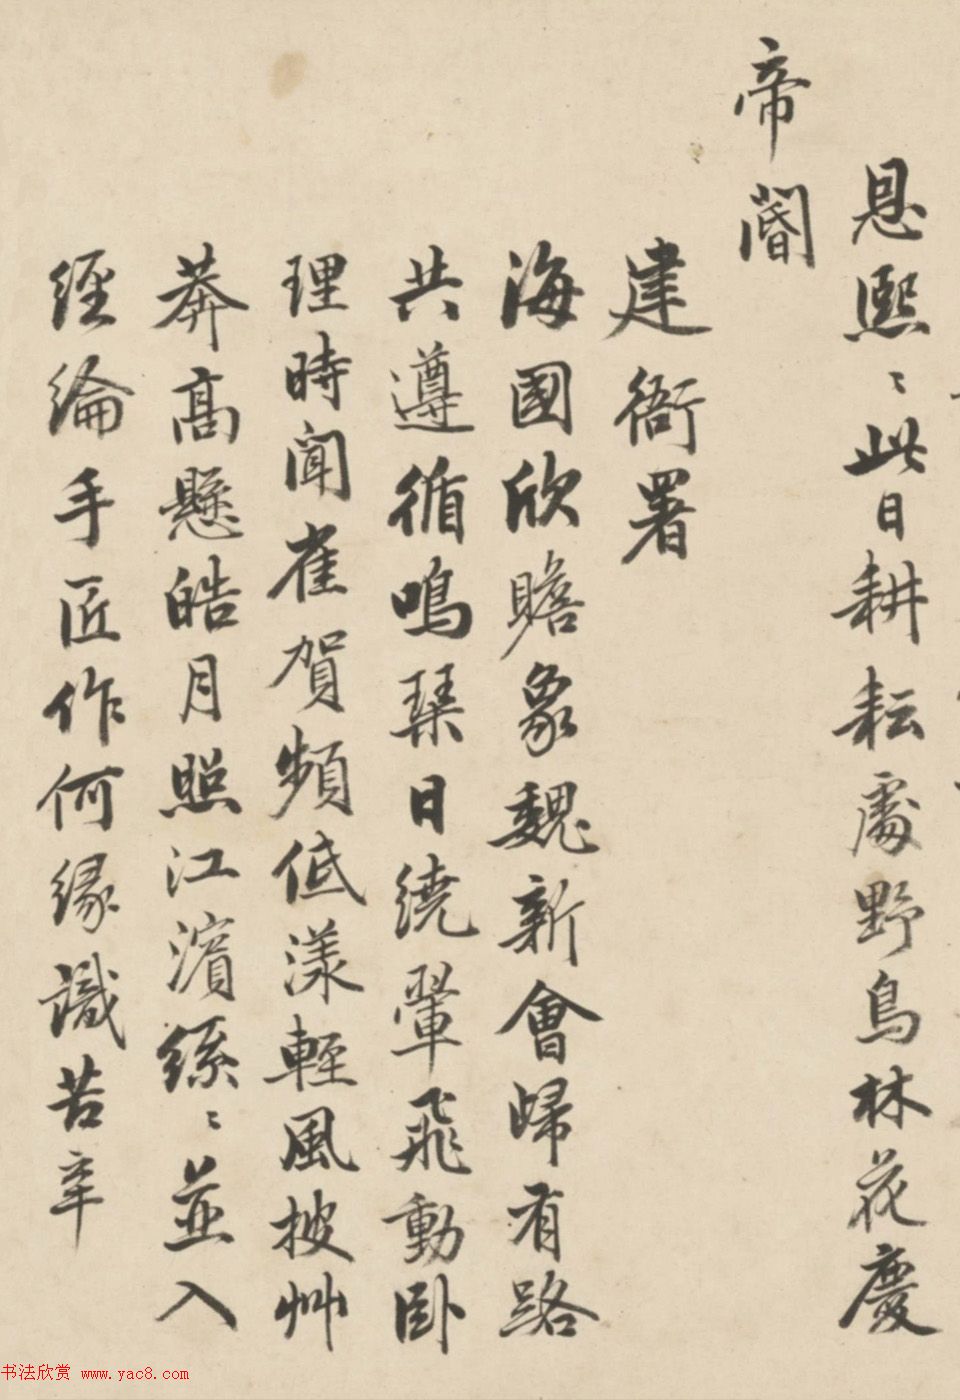 恩熙〻此日耕耘處野鳥林花慶
帝閽
建衙署
海國欣瞻象魏新會歸有路
共遵循鳴琹日繞翬飛動卧
理時聞雀賀頻低漾輕風披艸
莽高懸皓月照江濵繇〻並入
經綸手匠作何緣識苦辛
书法欣赏 www.yac8.com